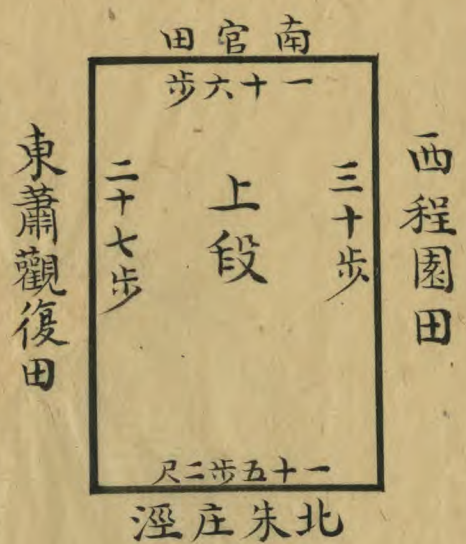 南官田
一十六步
西程園田
三十步
上段
二十七步
東蕭觀復田
一十五步二尺
北朱庄涇